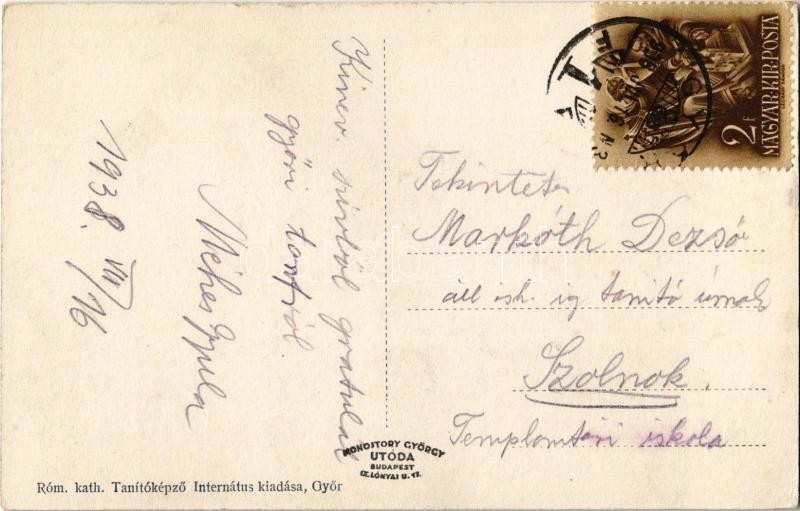 Kinev. szivből gratulál
győri tanf.ról
Méhes Gyula
1938. VII/16
Tekintetes
Markóth Dezső
áll. isk. ig. tanitó úrnak
Szolnok.
Templomtéri iskola
2 F
MAGYAR·KIR·POSTA
MONOSTORY GYÖRGY
UTÓDA
BUDAPEST
IX. LÓNYAI U. 17.
Róm. kath. Tanítóképző Internátus kiadása, Győr